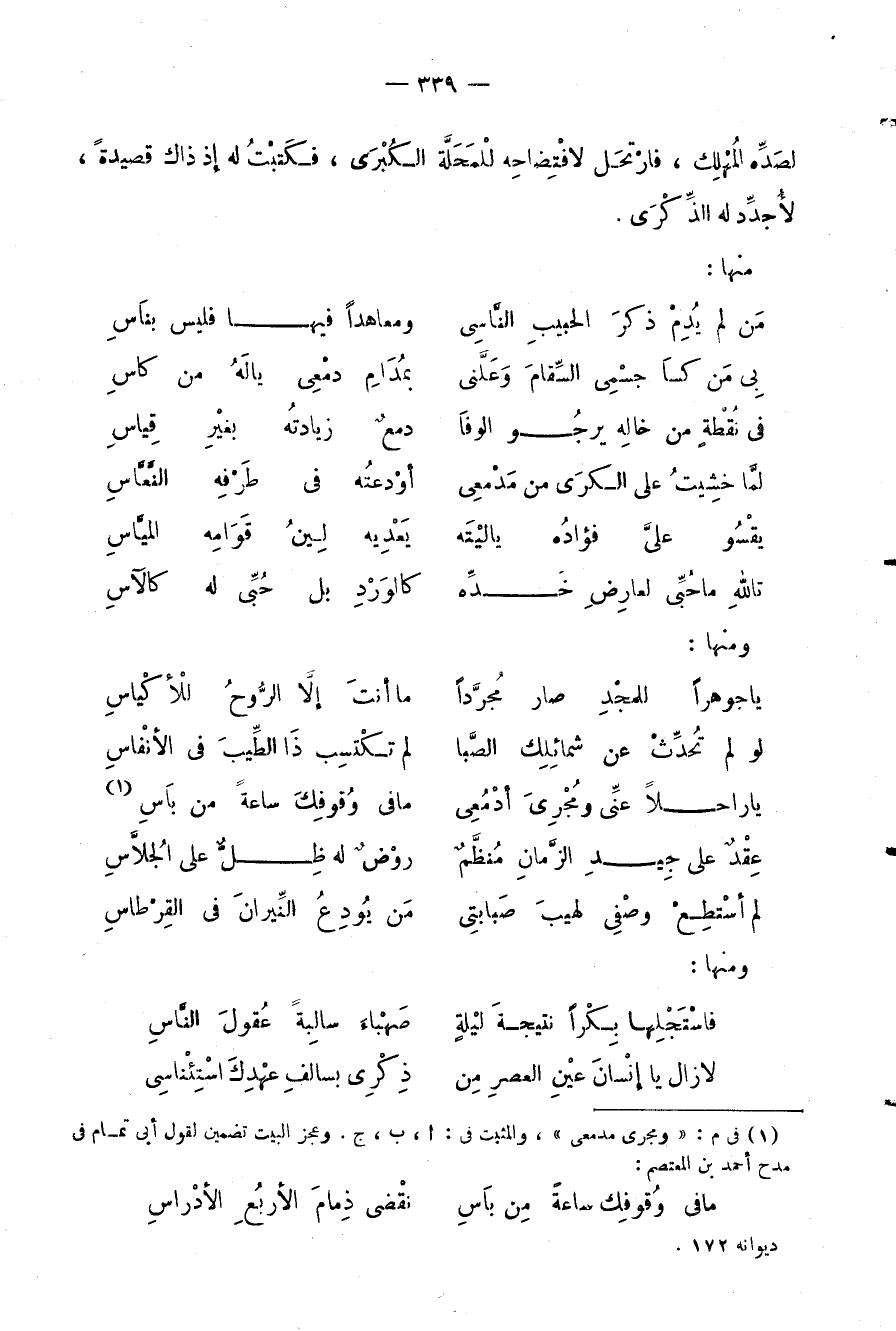 — ٣٣٩ —
لصَدِّه المُهْلِك ، فارْتحَل لافْتِضاحِه للْمَحَلَّة الكُبْرَى ، فكَتبْتُ له إذ ذاك قصيدةً ،
لأُجدِّد له االذِّكْرَى .
منها :
مَن لم يُدِمْ ذكرَ الحبيبِ النَّاسِى ومعاهداً فيها فليس بنَاسِ
بِى مَن كسَا جسْمِى السِّقامَ وَعَلَّنى بمُدَامِ دمْعِى يالَهُ من كاسِ
فى نُقْطةٍ من خالِه يرجُو الوفَا دمعٌ زيادتُه بغيْرِ قِياسِ
لمَّا خشِيتُ على الكرَى من مَدْمعِى أوْدعتُه فى طَرْفِه النَّعَّاسِ
يقْسُو علىَّ فؤادُه ياليْتَه يَعْدِيه لِينُ قَوَامِه الميَّاسِ
تاللهِ ماحُبِّى لعارِضِ خَدِّه كالوَرْدِ بل حُبِّى له كالآسِ
ومنها :
ياجوهراً للمجْدِ صار مُجرَّداً ما أنتَ إلَّا الرُّوحُ للْأكْياسِ
لو لم تُحدِّثْ عن شمائِلِك الصَّبا لم تكْتسِب ذَا الطِّيبَ فى الأنْفاسِ
ياراحلاً عنِّى ومُجْرِىَ أدْمُعِى مافى وُقوفِكَ ساعةً من بَاسِ (١)
عِقْدٌ على جِيدِ الزَّمانِ مُنظَّمٌ روْضٌ له ظِلٌّ على الجُلاَّسِ
لم أسْتطِعْ وصْفِى لهيبَ صَبابتِى مَن يُودِعُ النِّيرانَ فى القِرْطاسِ
ومنها :
فاسْتَجْلِها بِكْراً نتيجةَ ليلةٍ صَهْباءَ سالِبةً عُقولَ النَّاسِ
لازال يا إنْسانَ عيْنِ العصرِ مِن ذِكْرِى بسالفِ عهْدِكَ اسْتِئْناسِى
(١) فى م : « ومجرى مدمعى » ، والمثبت فى : ا ، ب ، ج . وعجز البيت تضمين لقول أبى تمام فى
مدح أحمد بن المعتصم :
مافى وُقوفِك ساعةً مِن بَاسِ نقْضى ذِمامَ الأربُعِ الأدْراسِ
ديوانه ١٧٢ .